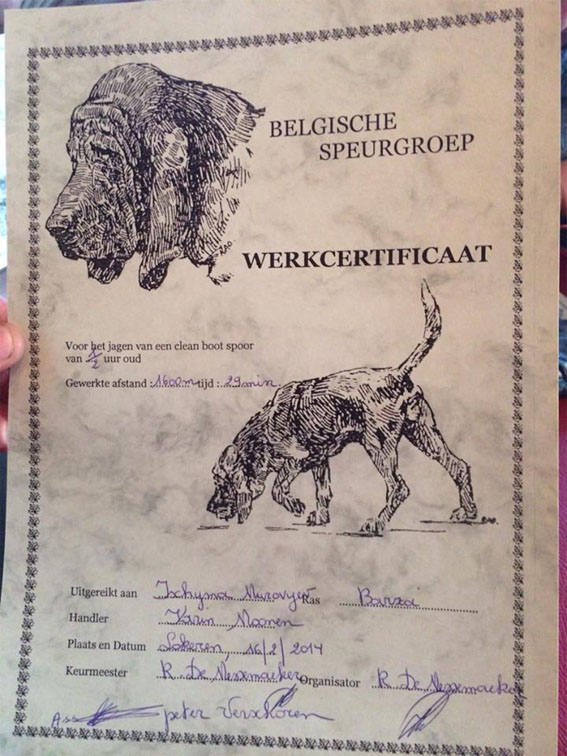 BELGISCHE
SPEURGROEP
WERKCERTIFICAAT
Voor het jagen van een clean boot spoor
van 1/2 uur oud
Gewerkte afstand : 1600m tijd : 29 min.
Uitgereikt aan Ras
Handler Karin Moonen
Plaats en Datum Lokeren 16/2/2014
Keurmeester R. De Organisator R. De
peter Verschoren